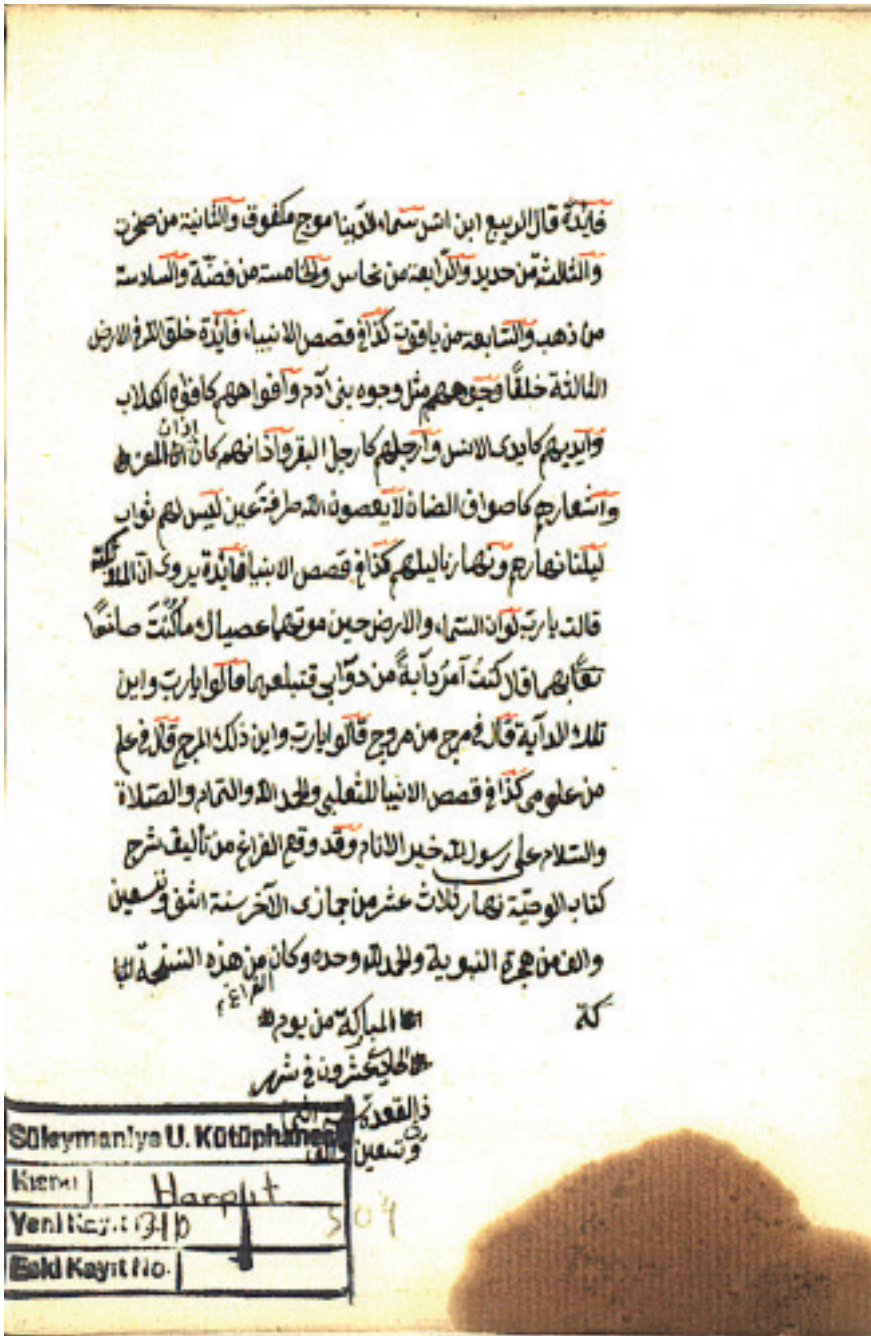 فايدة قال الربيع ابن انس سماء الدنيا موج مكفوف والثانية من صخرة
والثالثة من حديد والرابعة من نحاس والخامسة من فضة والسادسة
من ذهب والسابعة من ياقوت كذا في قصص الانبياء فايدة خلق الله في الارض
الثالثة خلقًا وجوههم مثل وجوه بنى آدم وآفواههم كافواه الكلاب
وايديهم كايدى الانس وارجلهم كارجل البقر وآذانهم كاذان المعز
واشعارهم كاصواف الضان لا يعصون الله طرفة عين ليس لهم ثواب
ليلنا نهارهم ونهارنا ليلهم كذا في قصص الانبيا فايدة يروى ان الملائكة
قالت يارب لو ان السماء والارض حين موتهما عصياك ما كُنْتَ صانعًا
بهما قال كنتُ آمرُ دآبةً من دوابى فتبلعهما قالوا يارب واين
تلك الدآبة قال في مرج من مروج قالوا يارب واين ذلك المرج قال في علم
من علومى كذا في قصص الانبيا للثعلبى والحمد لله والتمام والصلاة
والسلام على رسول الله خير الانام وقد وقع الفراغ من تأليف شرح
كتاب الوصية نهار ثلاث عشر من جمازى الآخر سنة اثنى وتسعين
والف من هجرة النبوية والحمد لله وحده وكان من هذه النسخة المبا
الفراغ
كة
المباركة من يوم
عشرون في شهر
ذالقعدة
وتسعين والف
Süleymaniye U. Kütüphanesi
Kısmı Harput
Yeni Kayıt
504
Eski Kayıt No.